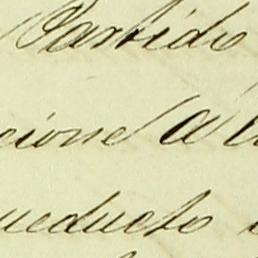 Partido
cione A
ueducto